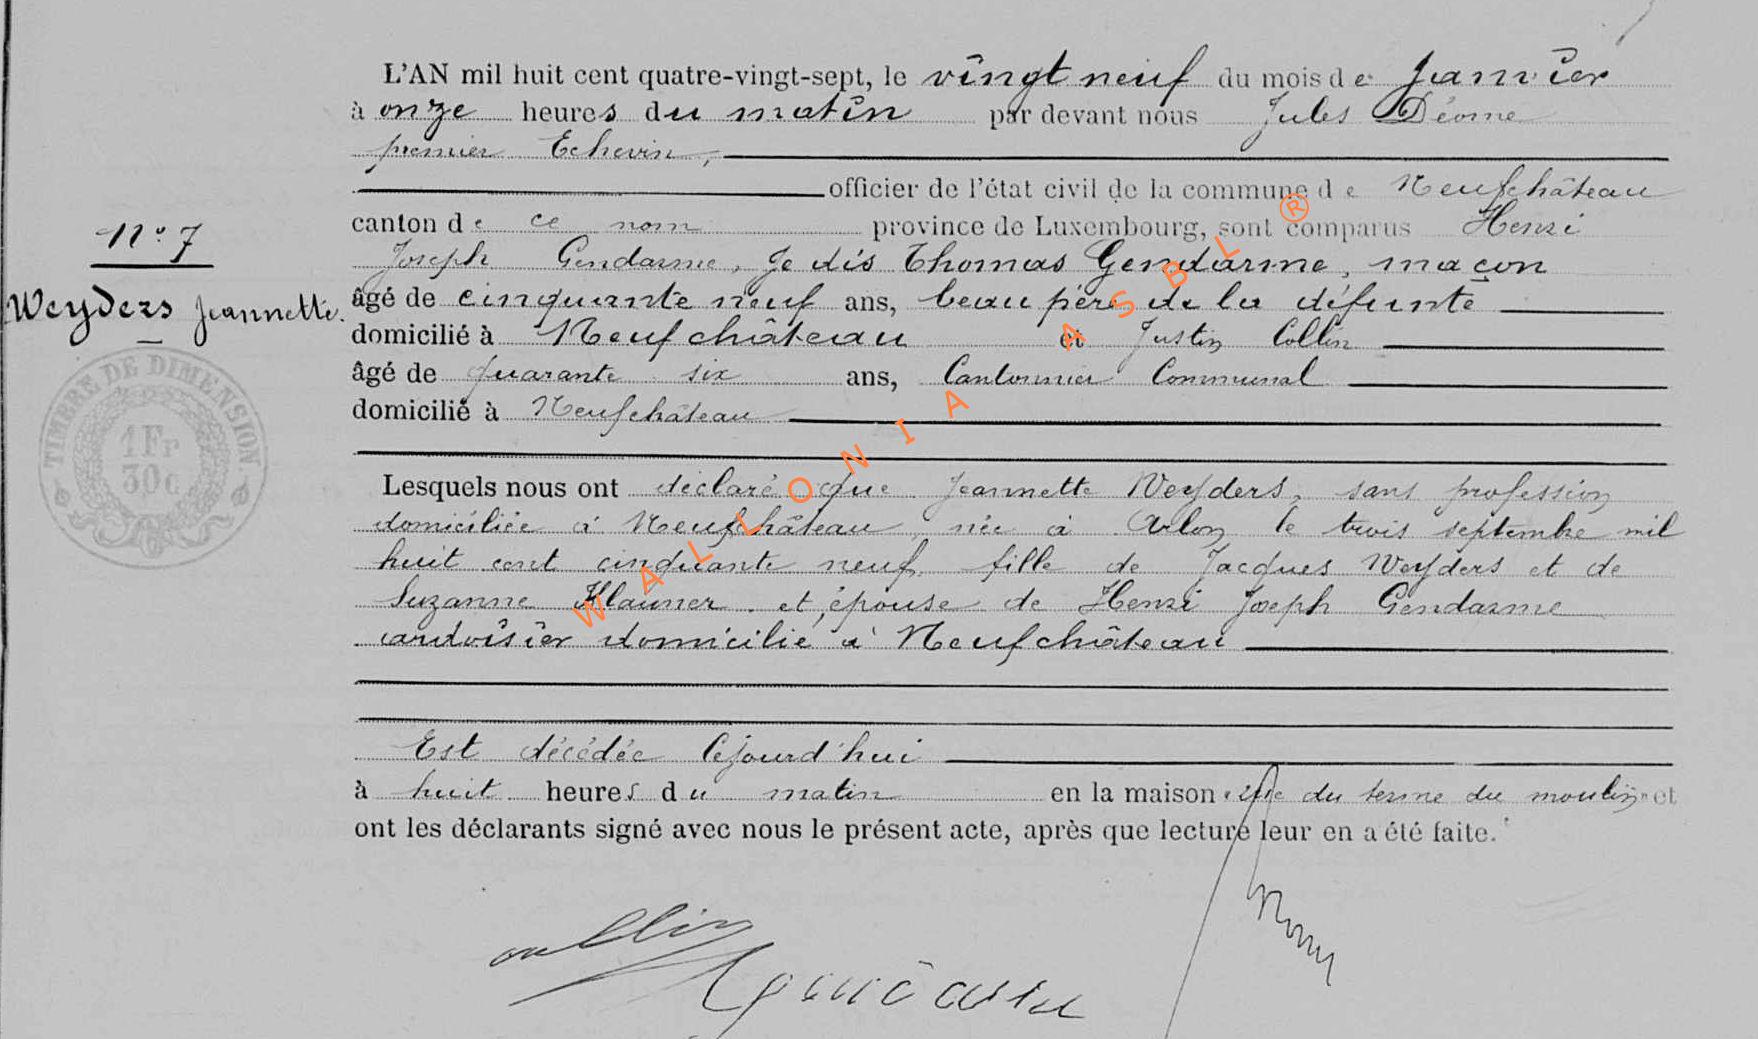 L'AN mil huit cent quatre-vingt-sept, le vingt neuf du mois de Janvier
à onze heures du matin par devant nous Jules Déome
premier Echevin,
officier de l'état civil de la commune de Neufchâteau
canton de ce nom province de Luxembourg, sont comparus Henri
Joseph Gendarme, Je dis Thomas Gendarme, maçon
âgé de cinquante neuf ans, beau père de la défunte
domicilié à Neufchâteau et Justin Collin
âgé de quarante six ans, Cantonnier Communal
domicilié à Neufchâteau
N° 7
Weyders Jeannette.
TIMBRE DE DIMENSION
1 Fr
30c
Lesquels nous ont déclaré que Jeannette Weyders, sans profession
domiciliée à Neufchâteau, née à Arlon le trois septembre mil
huit cent cinquante neuf, fille de Jacques Weyders et de
Suzanne Klauner et épouse de Henri Joseph Gendarme
ardoisier domicilié à Neufchâteau
Est décédée Cejourd'hui
à huit heures du matin en la maison, rue du terme du moulin et
ont les déclarants signé avec nous le présent acte, après que lecture leur en a été faite.
Collin
Gendarme
WALLONIA ASBL ®